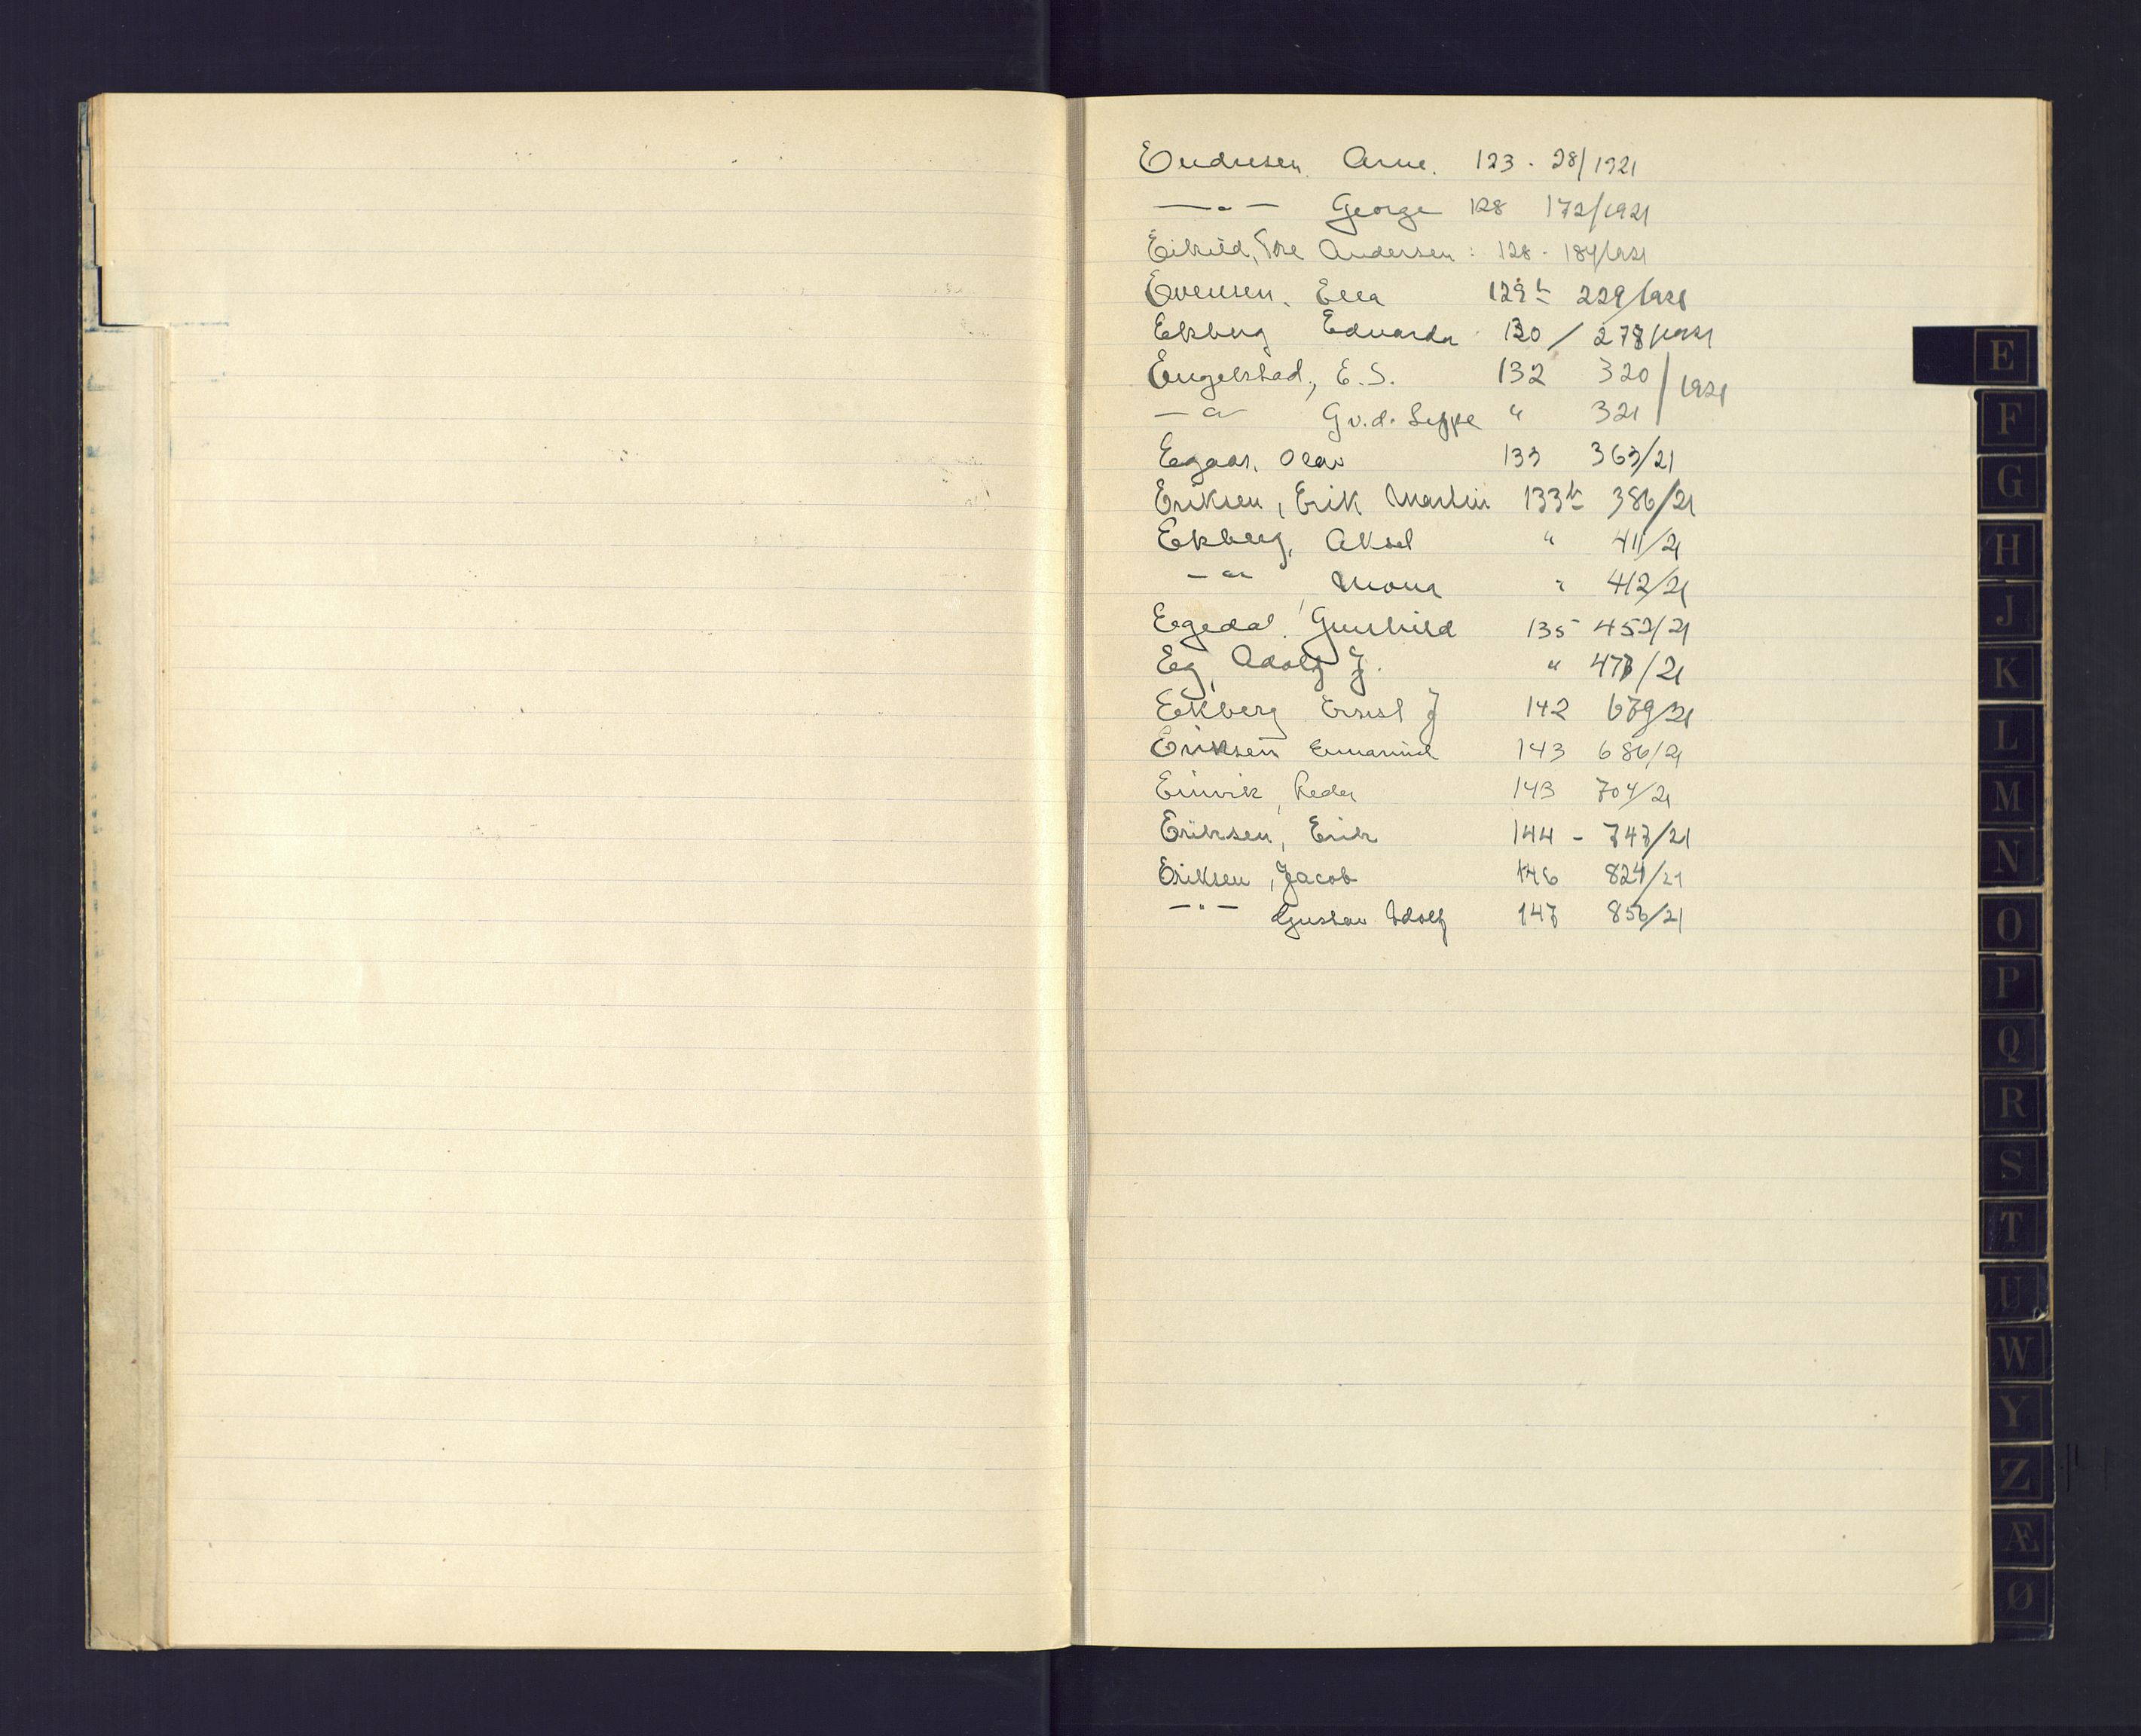 Endresen Arne. 123 - 28/1921
—"— George 128 172/1921
Eikild, Tore Andersen : 128 - 184/1921
Evensen. Ella 129b 229/1921
Ekberg Edvarda 130 / 278/1921
Engelstad, E.S. 132 320/1921
—"— G v.d. Lippe " 321
Eegaar, Olav 133 363/21
Eriksen, Erik Martin 133b 386/21
Ekberg, Aksel " 411/21
—"— Mona " 412/21
Egedal, Gunhild 135 452/21
Eeg, Adolf J. " 478/21
Ekberg Ernst J 142 679/21
Eriksen 143 686/21
Einvik, Peder 143 704/21
Eriksen, Erik 144 - 747/21
Eriksen, Jacob 146 824/21
—"— Gustav Adolf 147 856/21
E
F
G
H
J
K
L
M
N
O
P
Q
R
S
T
U
W
Y
Z
Æ
Ø